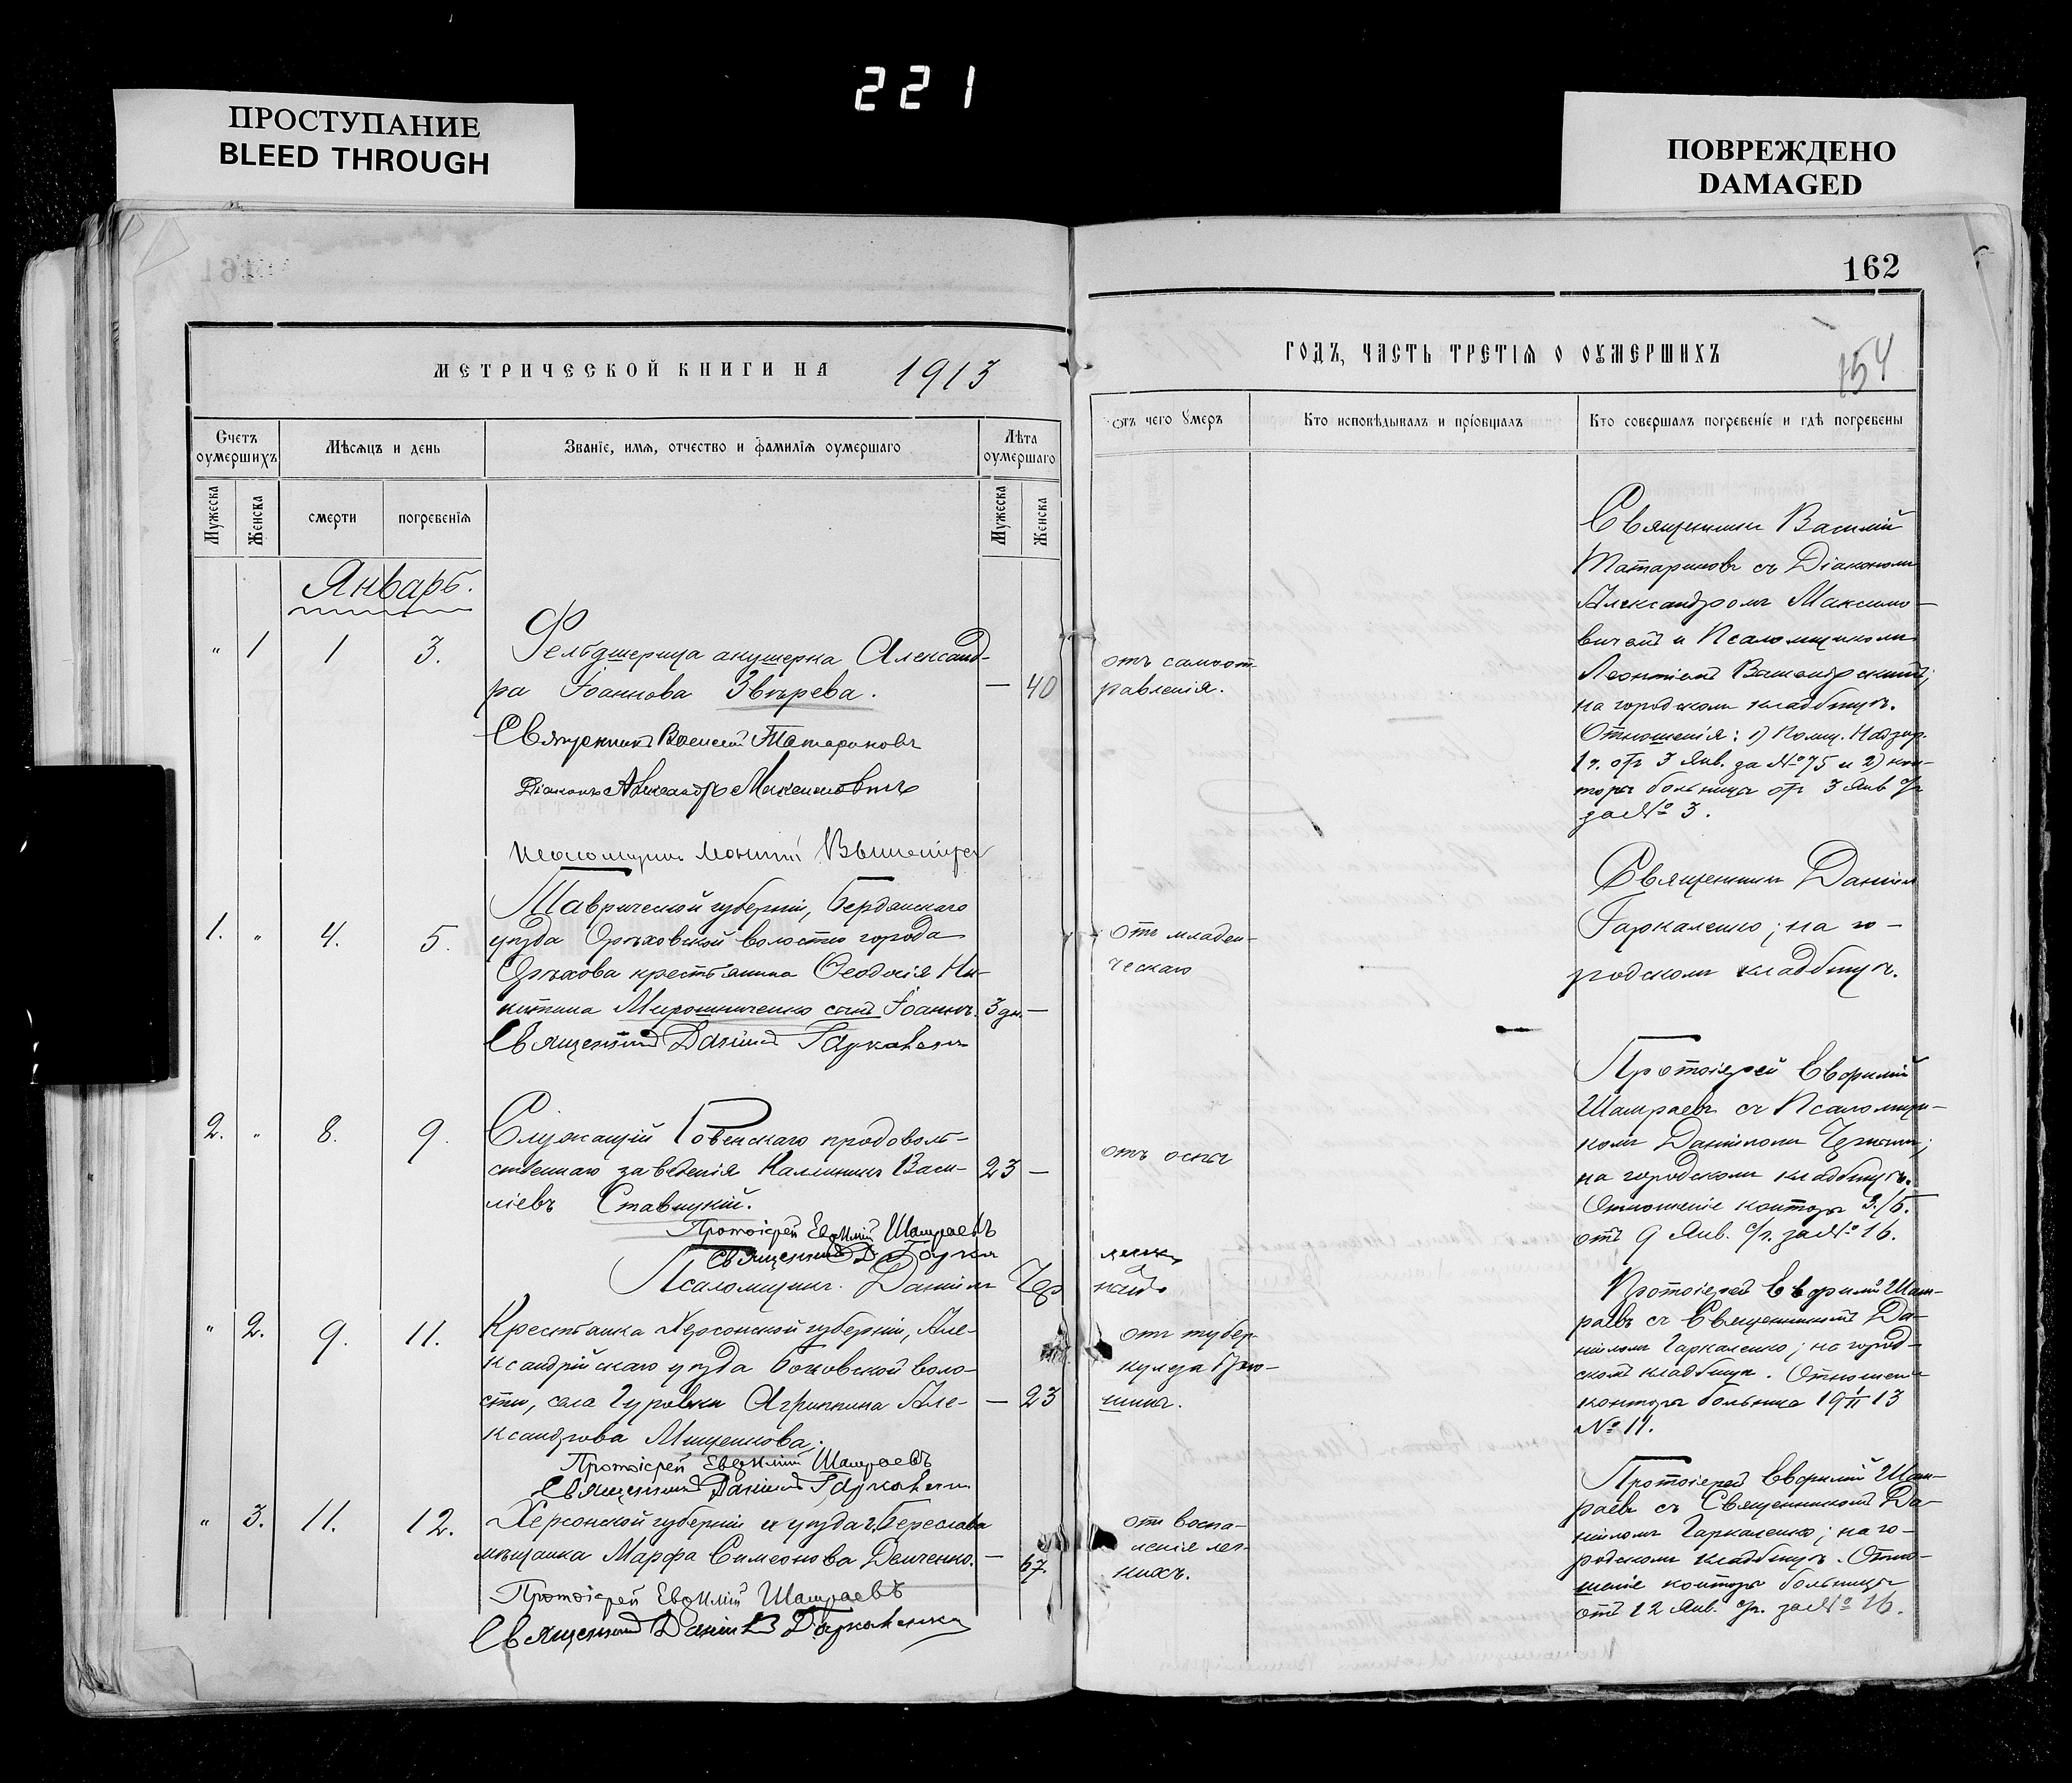 221
ПРОСТУПАНИЕ
BLEED THROUGH
ПОВРЕЖДЕНО
DAMAGED
162
154
МЕТРИЧЕСКОЙ КНИГИ НА 1913
ГОДЪ, ЧАСТЬ ТРЕТІЯ О ОУМЕРШИХЪ
Счетъ оумершихъ
Мѣсяцъ и день
Званіе, имя, отчество и фамилія оумершаго
Лѣта оумершаго
Отъ чего умеръ
Кто исповѣдывалъ и пріобщалъ
Кто совершалъ погребеніе и гдѣ погребены
Мужеска
Женска
смерти
погребенія
Мужеска
Женска
Январь.
" 1 1 3.
Фельдшерица акушерка Александ-
ра Іоаннова Звѣрева. — 40
Священникъ Василій Татариновъ
Діаконъ Александръ Максимовичъ
отъ самоот-
равленія.
Священникъ Василій
Татариновъ съ Діакономъ
Александромъ Максимо-
вичемъ и Псаломщикомъ
Леонтіемъ
на городскомъ кладбищѣ.
Отношенія: 1) Полиц. Надзир.
1 ч. отъ 3 Янв. за № 75 и 2) кон-
торы больницы отъ 3 Янв с/г
за № 3.
1. " 4. 5.
Таврической губерніи, Бердянскаго
уѣзда Орѣховской волости города
Орѣхова крестьянина Ѳеодосія Ни-
китина Мирошниченко сынъ Іоаннъ. 3 дн. —
Священникъ Даніилъ Гаркаленко
отъ младен-
ческаго
Священникъ Даніилъ
Гаркаленко; на го-
родскомъ кладбищѣ.
2. " 8. 9.
Служащій Ровенскаго продоволь-
ственнаго заведенія Каллиникъ Васи-
ліевъ Ставицкій. 23 —
Протоіерей Евѳимій Шамраевъ
Священникъ Д. Гарка
Псаломщикъ Даніилъ Чер
отъ оспы
Протоіерей Евѳимій
Шамраевъ съ Псаломщи-
комъ Даніиломъ
на городскомъ кладбищѣ.
Отношеніе конторы З./Б.
отъ 9 Янв. с/г. за № 16.
" 2. 9. 11.
Крестьянка Херсонской губерніи, Але-
ксандрійскаго уѣзда Боковской воло-
сти, села Гуровки Агриппина Але-
ксандрова Мищенкова. — 23
Протоіерей Евѳимій Шамраевъ
Священникъ Даніилъ Гаркаленко
отъ тубер-
кулеза Брю-
шины.
Протоіерей Евѳимій Шам-
раевъ съ Священникомъ Да-
ніиломъ Гаркаленко; на город-
скомъ кладбищѣ. Отношеніе
конторы больницы 13
№ 11.
" 3. 11. 12.
Херсонской губерніи и уѣзда г. Береслава
мѣщанка Марфа Симеонова Демченко. — 67.
Протоіерей Евѳимій Шамраевъ
Священникъ Даніилъ Гаркаленко
отъ воспа-
ленія лег-
кихъ.
Протоіерей Евѳимій Шам-
раевъ съ Священникомъ Да-
ніиломъ Гаркаленко; на го-
родскомъ кладбищѣ. Отно-
шеніе конторы больницы
отъ 12 Янв. с/г. за № 16.